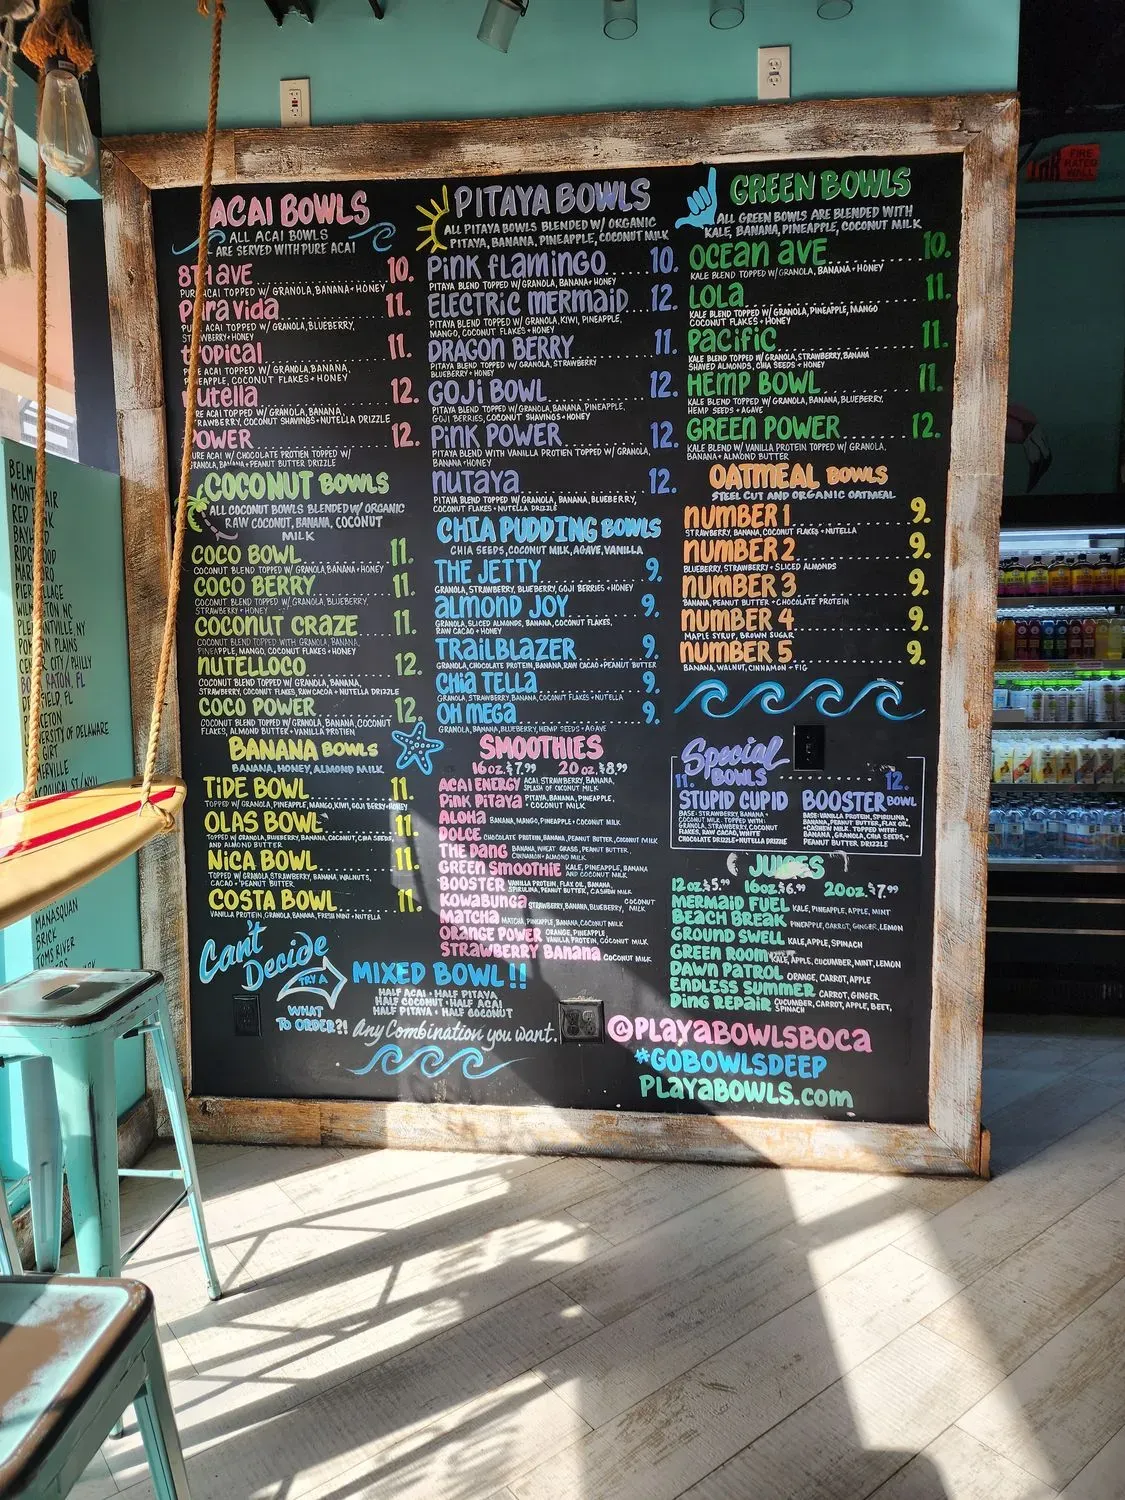 ACAI BOWLS
ALL ACAI BOWLS
ARE SERVED WITH PURE ACAI
8TH AVE 10.
PURE ACAI TOPPED W/ GRANOLA, BANANA + HONEY
Pura vida 11.
ACAI TOPPED W/ GRANOLA, BLUEBERRY,
STRAWBERRY + HONEY
tropical 11.
ACAI TOPPED W/ GRANOLA, BANANA,
PINEAPPLE, COCONUT FLAKES + HONEY
nutella 12.
ACAI TOPPED W/ GRANOLA, BANANA,
STRAWBERRY, COCONUT SHAVINGS + NUTELLA DRIZZLE
POWER 12.
PURE ACAI W/ CHOCOLATE PROTIEN TOPPED W/
GRANOLA, BANANA + PEANUT BUTTER DRIZZLE
COCONUT BOWLS
ALL COCONUT BOWLS BLENDED W/ ORGANIC
RAW COCONUT, BANANA, COCONUT
MILK
COCO BOWL 11.
COCONUT BLEND TOPPED W/ GRANOLA, BANANA + HONEY
COCO BERRY 11.
COCONUT BLEND TOPPED W/ GRANOLA, BLUEBERRY,
STRAWBERRY + HONEY
COCONUT CRAZE 11.
COCONUT BLEND TOPPED WITH GRANOLA, BANANA,
PINEAPPLE, MANGO, COCONUT FLAKES + HONEY
NUTELLOCO 12.
COCONUT BLEND TOPPED W/ GRANOLA, BANANA,
STRAWBERRY, COCONUT FLAKES, RAW CACOA + NUTELLA DRIZZLE
COCO POWER 12.
COCONUT BLEND TOPPED W/ GRANOLA, BANANA, COCONUT
FLAKES, ALMOND BUTTER + VANILLA PROTIEN
BANANA BOWLS
BANANA, HONEY, ALMOND MILK
TiDE BOWL 11.
TOPPED W/ GRANOLA, PINEAPPLE, MANGO, KIWI, GOJI BERRY + HONEY
OLAS BOWL 11.
TOPPED W/ GRANOLA, BLUEBERRY, BANANA, COCONUT, CHIA SEEDS,
AND ALMOND BUTTER
NiCA BOWL 11.
TOPPED W/ GRANOLA, STRAWBERRY, BANANA, WALNUTS,
CACAO + PEANUT BUTTER
COSTA BOWL 11.
VANILLA PROTEIN, GRANOLA, BANANA, FRESH MINT + NUTELLA
Can't
Decide
TRY A
WHAT
TO ORDER?!
MIXED BOWL!!
HALF ACAI + HALF PITAYA
HALF COCONUT + HALF ACAI
HALF PITAYA + HALF COCONUT
Any Combination you want.
PITAYA BOWLS
ALL PITAYA BOWLS BLENDED W/ ORGANIC
PITAYA, BANANA, PINEAPPLE, COCONUT MILK
Pink flamingo 10.
PITAYA BLEND TOPPED W/ GRANOLA, BANANA + HONEY
ELECTRIC mermaid 12.
PITAYA BLEND TOPPED W/ GRANOLA, KIWI, PINEAPPLE,
MANGO, COCONUT FLAKES + HONEY
DRAGON BERRY 11.
PITAYA BLEND TOPPED W/ GRANOLA, STRAWBERRY
BLUEBERRY + HONEY
GOJi BOWL 12.
PITAYA BLEND TOPPED W/ GRANOLA, BANANA, PINEAPPLE,
GOJI BERRIES, COCONUT SHAVINGS + HONEY
Pink POWER 12.
PITAYA BLEND WITH VANILLA PROTIEN TOPPED W/ GRANOLA,
BANANA + HONEY
nutaya 12.
PITAYA BLEND TOPPED W/ GRANOLA, BANANA, BLUEBERRY,
COCONUT FLAKES + NUTELLA DRIZZLE
CHIA PUDDING BOWLS
CHIA SEEDS, COCONUT MILK, AGAVE, VANILLA
THE JETTY 9.
GRANOLA, STRAWBERRY, BLUEBERRY, GOJI BERRIES + HONEY
almond JOY 9.
GRANOLA, SLICED ALMONDS, BANANA, COCONUT FLAKES,
RAW CACAO + HONEY
TRAILBLAZER 9.
GRANOLA, CHOCOLATE PROTEIN, BANANA, RAW CACAO + PEANUT BUTTER
Chia TELLA 9.
GRANOLA, STRAWBERRY, BANANA, COCONUT FLAKES + NUTELLA
OH mega 9.
GRANOLA, BANANA, BLUEBERRY, HEMP SEEDS + AGAVE
SMOOTHIES
16 oz. $7.99 20 oz. $8.99
ACAI ENERGY ACAI, STRAWBERRY, BANANA,
SPLASH OF COCONUT MILK
Pink Pitaya PITAYA, BANANA, PINEAPPLE,
+ COCONUT MILK
ALOHA BANANA, MANGO, PINEAPPLE + COCONUT MILK
DOLCE CHOCOLATE PROTEIN, BANANA, PEANUT BUTTER, COCONUT MILK
THE Dang BANANA, WHEAT GRASS, PEANUT BUTTER,
CINNAMON + ALMOND MILK
GREEN SMOOTHIE KALE, PINEAPPLE, BANANA
AND COCONUT MILK
BOOSTER VANILLA PROTEIN, FLAX OIL, BANANA,
SPIRULINA, PEANUT BUTTER, CASHEW MILK
KOWABUNGA STRAWBERRY, BANANA, BLUEBERRY, COCONUT MILK
MATCHA MATCHA, PINEAPPLE, BANANA, COCONUT MILK
ORANGE POWER ORANGE, PINEAPPLE,
VANILLA PROTEIN, COCONUT MILK
STRAWBERRY BANANA COCONUT MILK
GREEN BOWLS
ALL GREEN BOWLS ARE BLENDED WITH
KALE, BANANA, PINEAPPLE, COCONUT MILK
OCEAN AVE 10.
KALE BLEND TOPPED W/ GRANOLA, BANANA + HONEY
LOLA 11.
KALE BLEND TOPPED W/ GRANOLA, PINEAPPLE, MANGO
COCONUT FLAKES + HONEY
Pacific 11.
KALE BLEND TOPPED W/ GRANOLA, STRAWBERRY, BANANA
SHAVED ALMONDS, CHIA SEEDS + HONEY
HEMP BOWL 11.
KALE BLEND TOPPED W/ GRANOLA, BANANA, BLUEBERRY,
HEMP SEEDS + AGAVE
GREEN POWER 12.
KALE BLEND W/ VANILLA PROTEIN TOPPED W/ GRANOLA,
BANANA + ALMOND BUTTER
OATMEAL BOWLS
STEEL CUT AND ORGANIC OATMEAL
NUMBER 1 9.
STRAWBERRY, BANANA, COCONUT FLAKES + NUTELLA
NUMBER 2 9.
BLUEBERRY, STRAWBERRY + SLICED ALMONDS
NUMBER 3 9.
BANANA, PEANUT BUTTER + CHOCOLATE PROTEIN
NUMBER 4 9.
MAPLE SYRUP, BROWN SUGAR
NUMBER 5 9.
BANANA, WALNUT, CINNAMON + FIG
Special
BOWLS
11. 12.
STUPID CUPID
BASE: STRAWBERRY, BANANA +
COCONUT MILK. TOPPED WITH:
GRANOLA, STRAWBERRY, COCONUT
FLAKES, RAW CACAO, WHITE
CHOCOLATE DRIZZLE + NUTELLA DRIZZLE
BOOSTER BOWL
BASE: VANILLA PROTEIN, SPIRULINA,
BANANA, PEANUT BUTTER, FLAX OIL,
+ CASHEW MILK. TOPPED WITH:
BANANA, GRANOLA, CHIA SEEDS, +
PEANUT BUTTER DRIZZLE
JUICES
12 oz. $5.99 16 oz. $6.99 20 oz. $7.99
MERMAID FUEL KALE, PINEAPPLE, APPLE, MINT
BEACH BREAK PINEAPPLE, CARROT, GINGER, LEMON
GROUND SWELL KALE, APPLE, SPINACH
GREEN ROOM KALE, APPLE, CUCUMBER, MINT, LEMON
DAWN PATROL ORANGE, CARROT, APPLE
ENDLESS SUMMER CARROT, GINGER
Ding REPAIR CUCUMBER, CARROT, APPLE, BEET,
SPINACH
@PLAYABOWLSBOCA
#GOBOWLSDEEP
PLAYABOWLS.com
FIRE
RATED
WALL
PRINCETON
UNIVERSITY OF DELAWARE
MANASQUAN
BRICK
TOMS RIVER